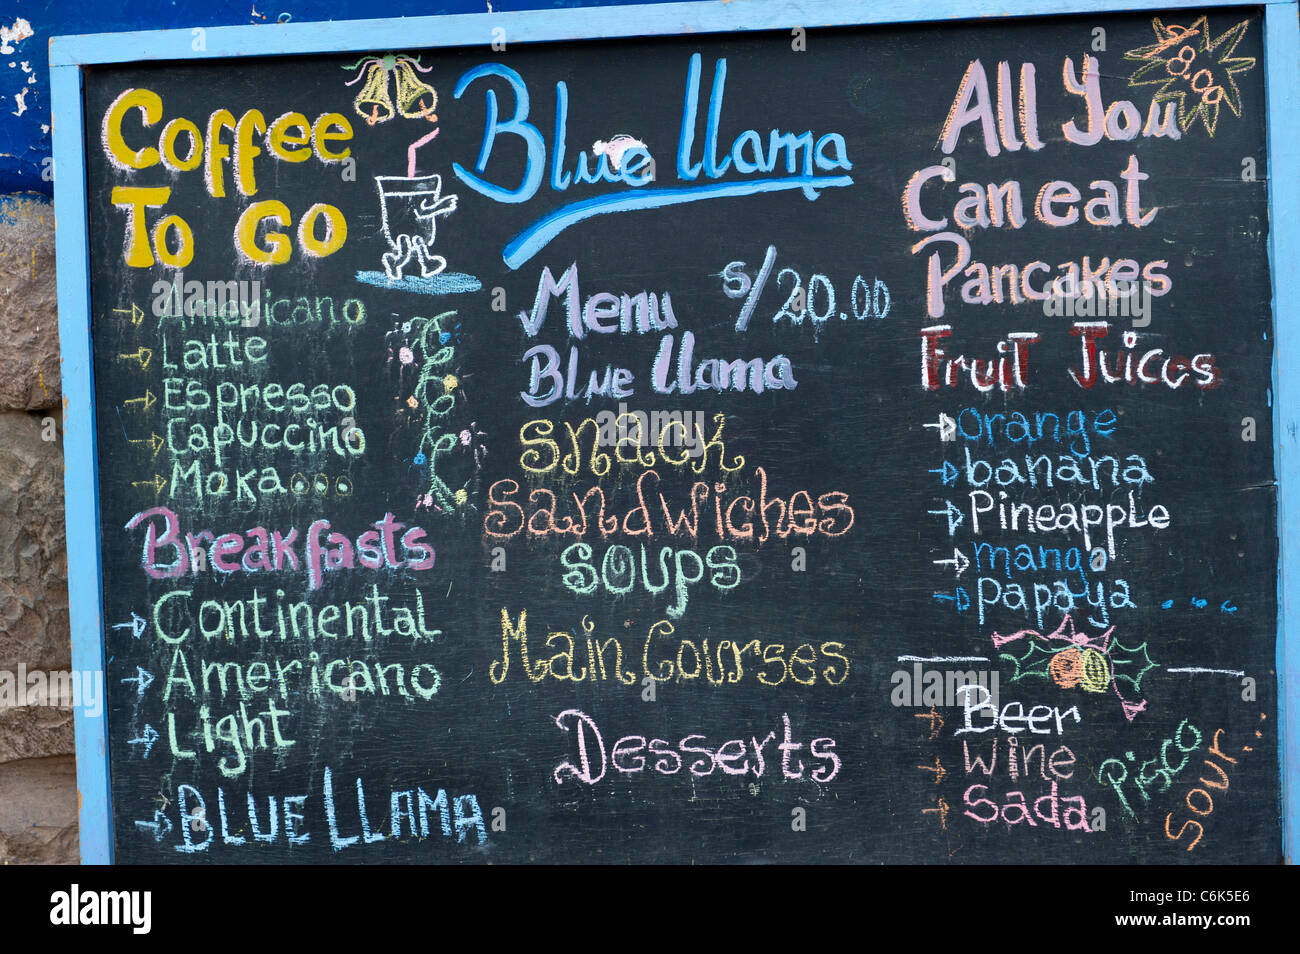 Coffee
To Go
Americano
Latte
Espresso
Capuccino
Moka...
Breakfasts
Continental
Americano
Light
Blue Llama
Blue llama
Menu s/20.00
Blue llama
Snack
Sandwiches
Soups
Main Courses
Desserts
All You
8.00
Can eat
Pancakes
Fruit Juices
orange
banana
Pineapple
mango
papaya ...
Beer
Wine
Sada
Pisco
Sour...
alamy
Image ID: C6K5E6
www.alamy.com